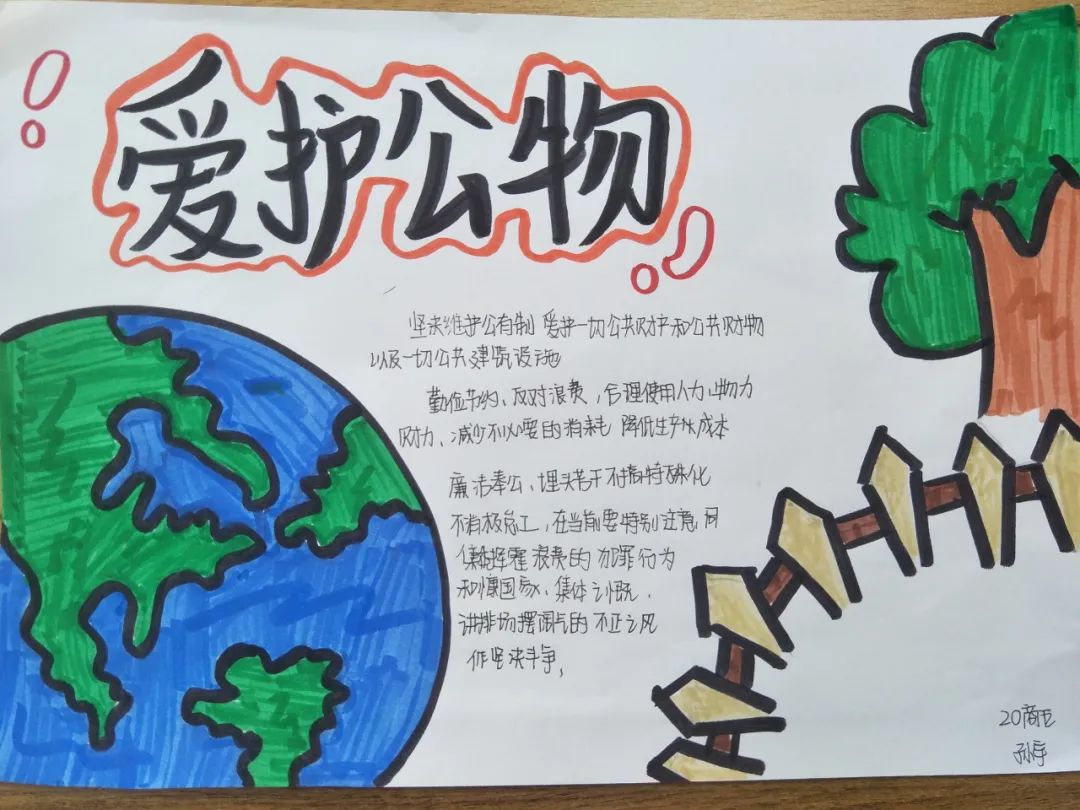 爱护公物
坚决维护公有制 爱护一切公共财产和公共财物
以及一切公共建筑设施
勤俭节约、反对浪费，合理使用人力、物力
财力、减少不必要的消耗 降低生产成本
廉洁奉公、埋头苦干不搞特殊化
不消极怠工，在当前要特别注意，同
挥霍浪费的犯罪行为
国家、集体之
讲排场摆阔气的不正之风
作坚决斗争，
20商
孙宇